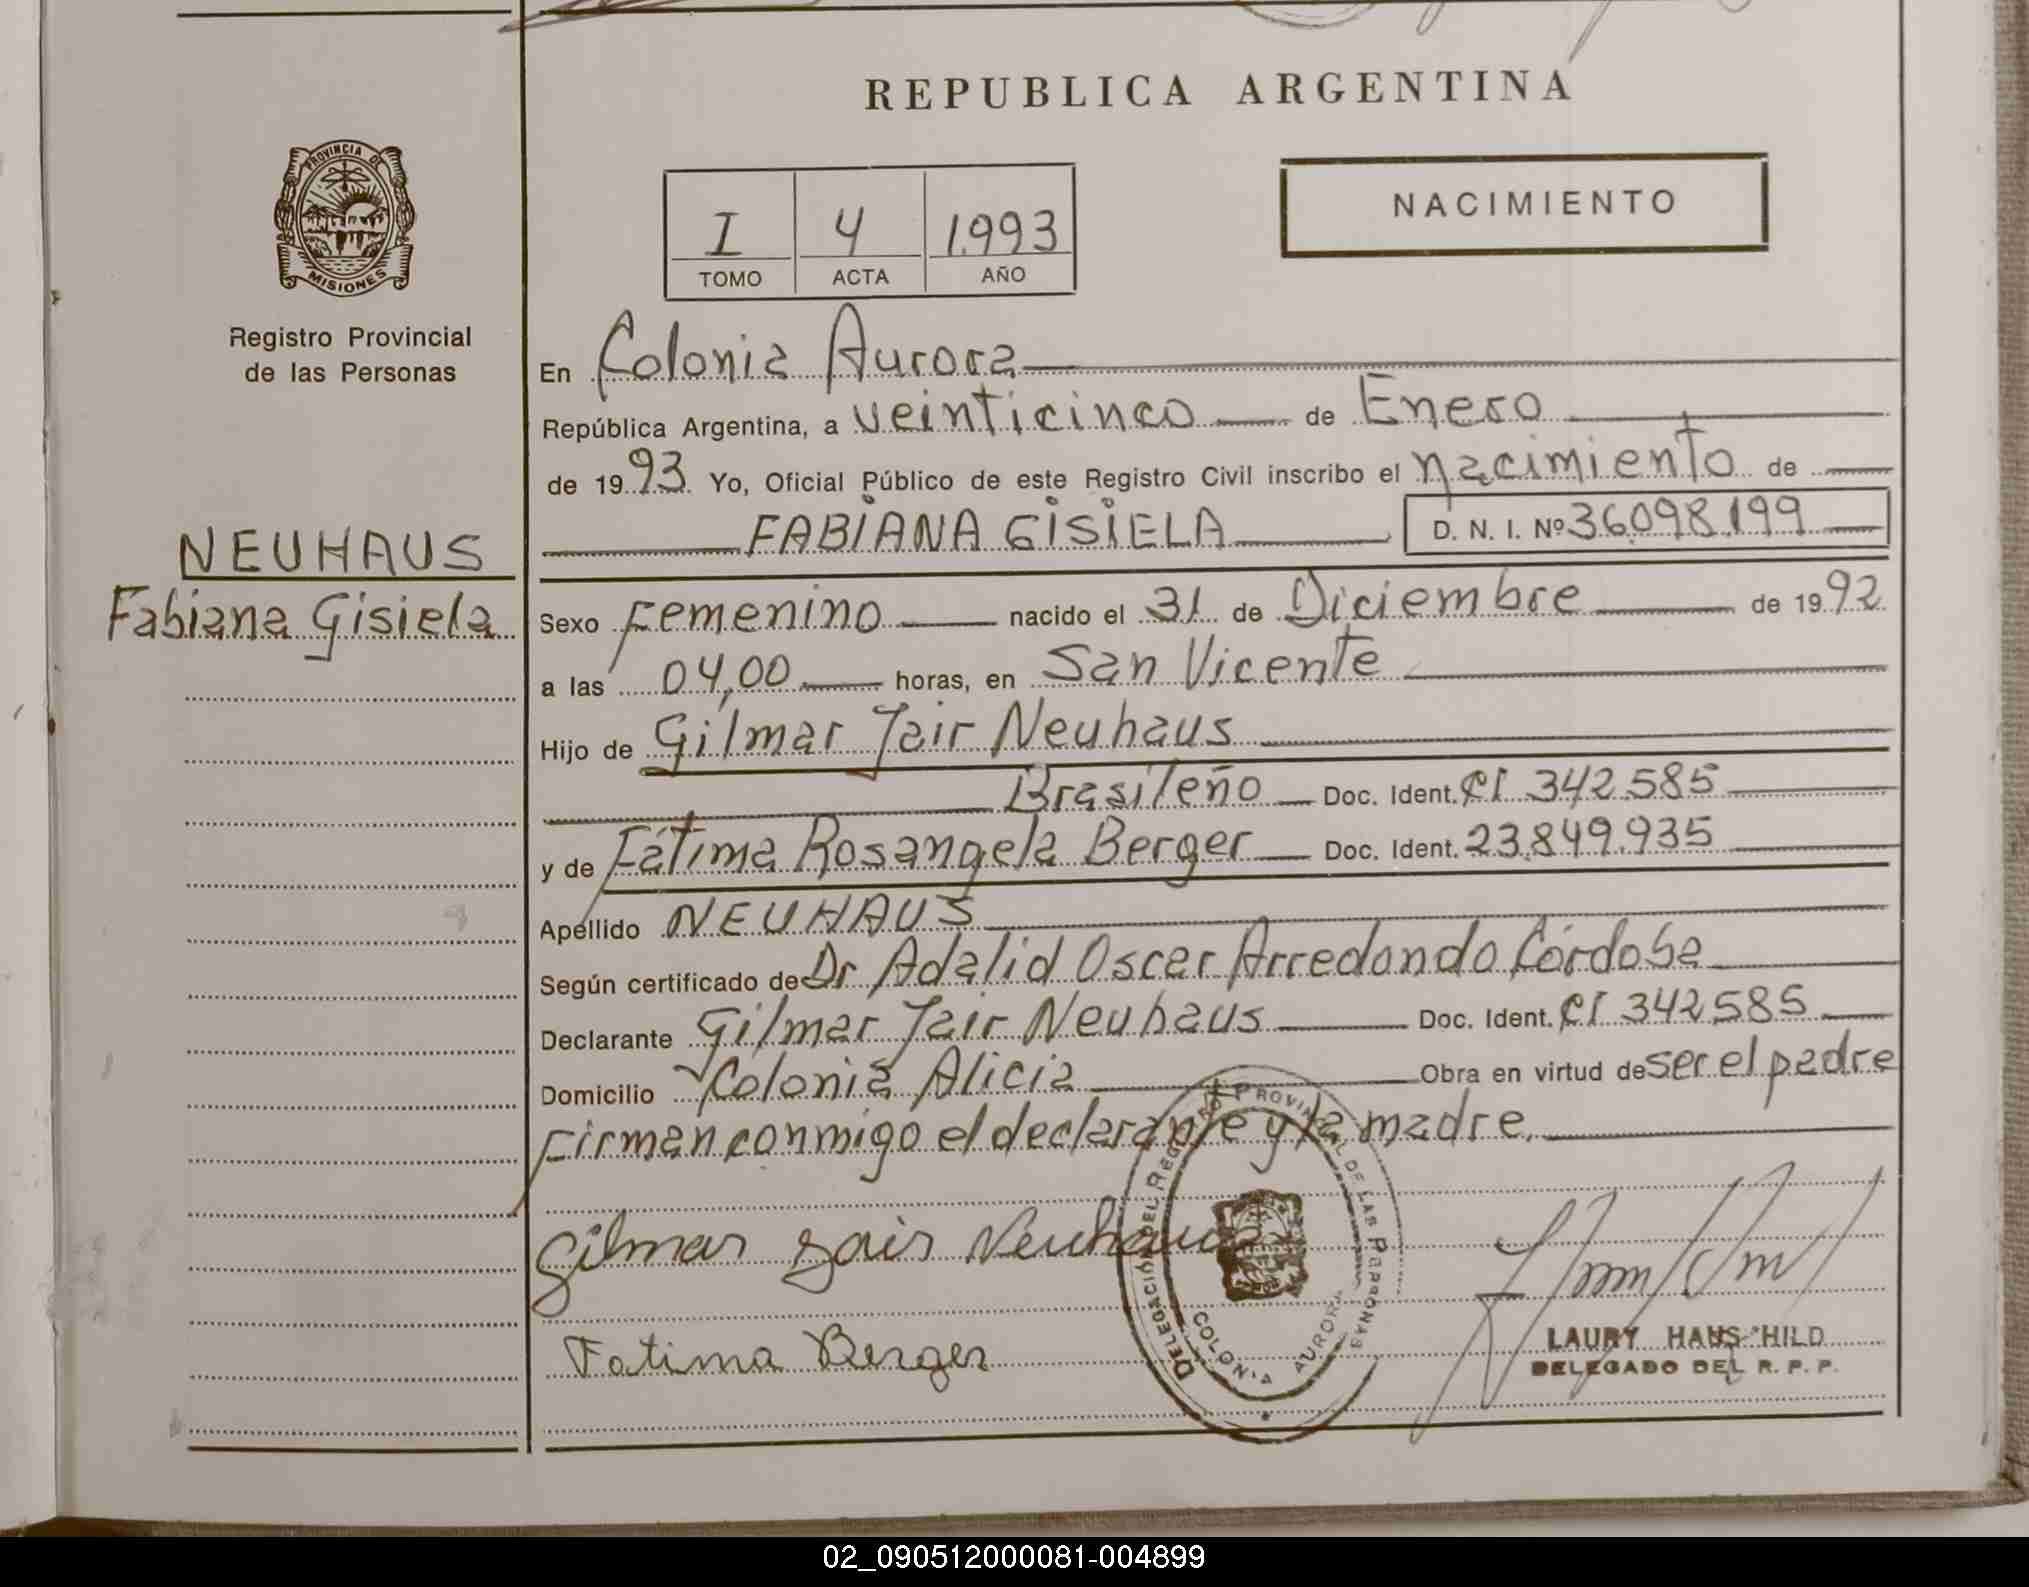 REPUBLICA ARGENTINA
PROVINCIA DE
MISIONES
Registro Provincial
de las Personas
NEUHAUS
Fabiana Gisiela
I 4 1.993
TOMO ACTA AÑO
NACIMIENTO
En Colonia Aurora
República Argentina, a veinticinco de Enero
de 1993 Yo, Oficial Público de este Registro Civil inscribo el nacimiento de
FABIANA GISIELA D. N. I. Nº 36.098.199
Sexo Femenino nacido el 31 de Diciembre de 1992
a las 04,00 horas, en San Vicente
Hijo de Gilmar Jair Neuhaus
Brasileño Doc. Ident. CI 342.585
y de Fátima Rosangela Berger Doc. Ident. 23.849.935
Apellido NEUHAUS
Según certificado de Dr Adalid Oscar Arredondo Córdoba
Declarante Gilmar Jair Neuhaus Doc. Ident. CI 342.585
Domicilio Colonia Alicia Obra en virtud de ser el padre
Firman conmigo el declarante y la madre.
Gilmar Jair Neuhaus
Fatima Berger
DELEGACIÓN DEL REGISTRO PROVINCIAL DE LAS PERSONAS
COLONIA AURORA
LAURY HAUS HILD
DELEGADO DEL R. P. P.
02_090512000081-004899